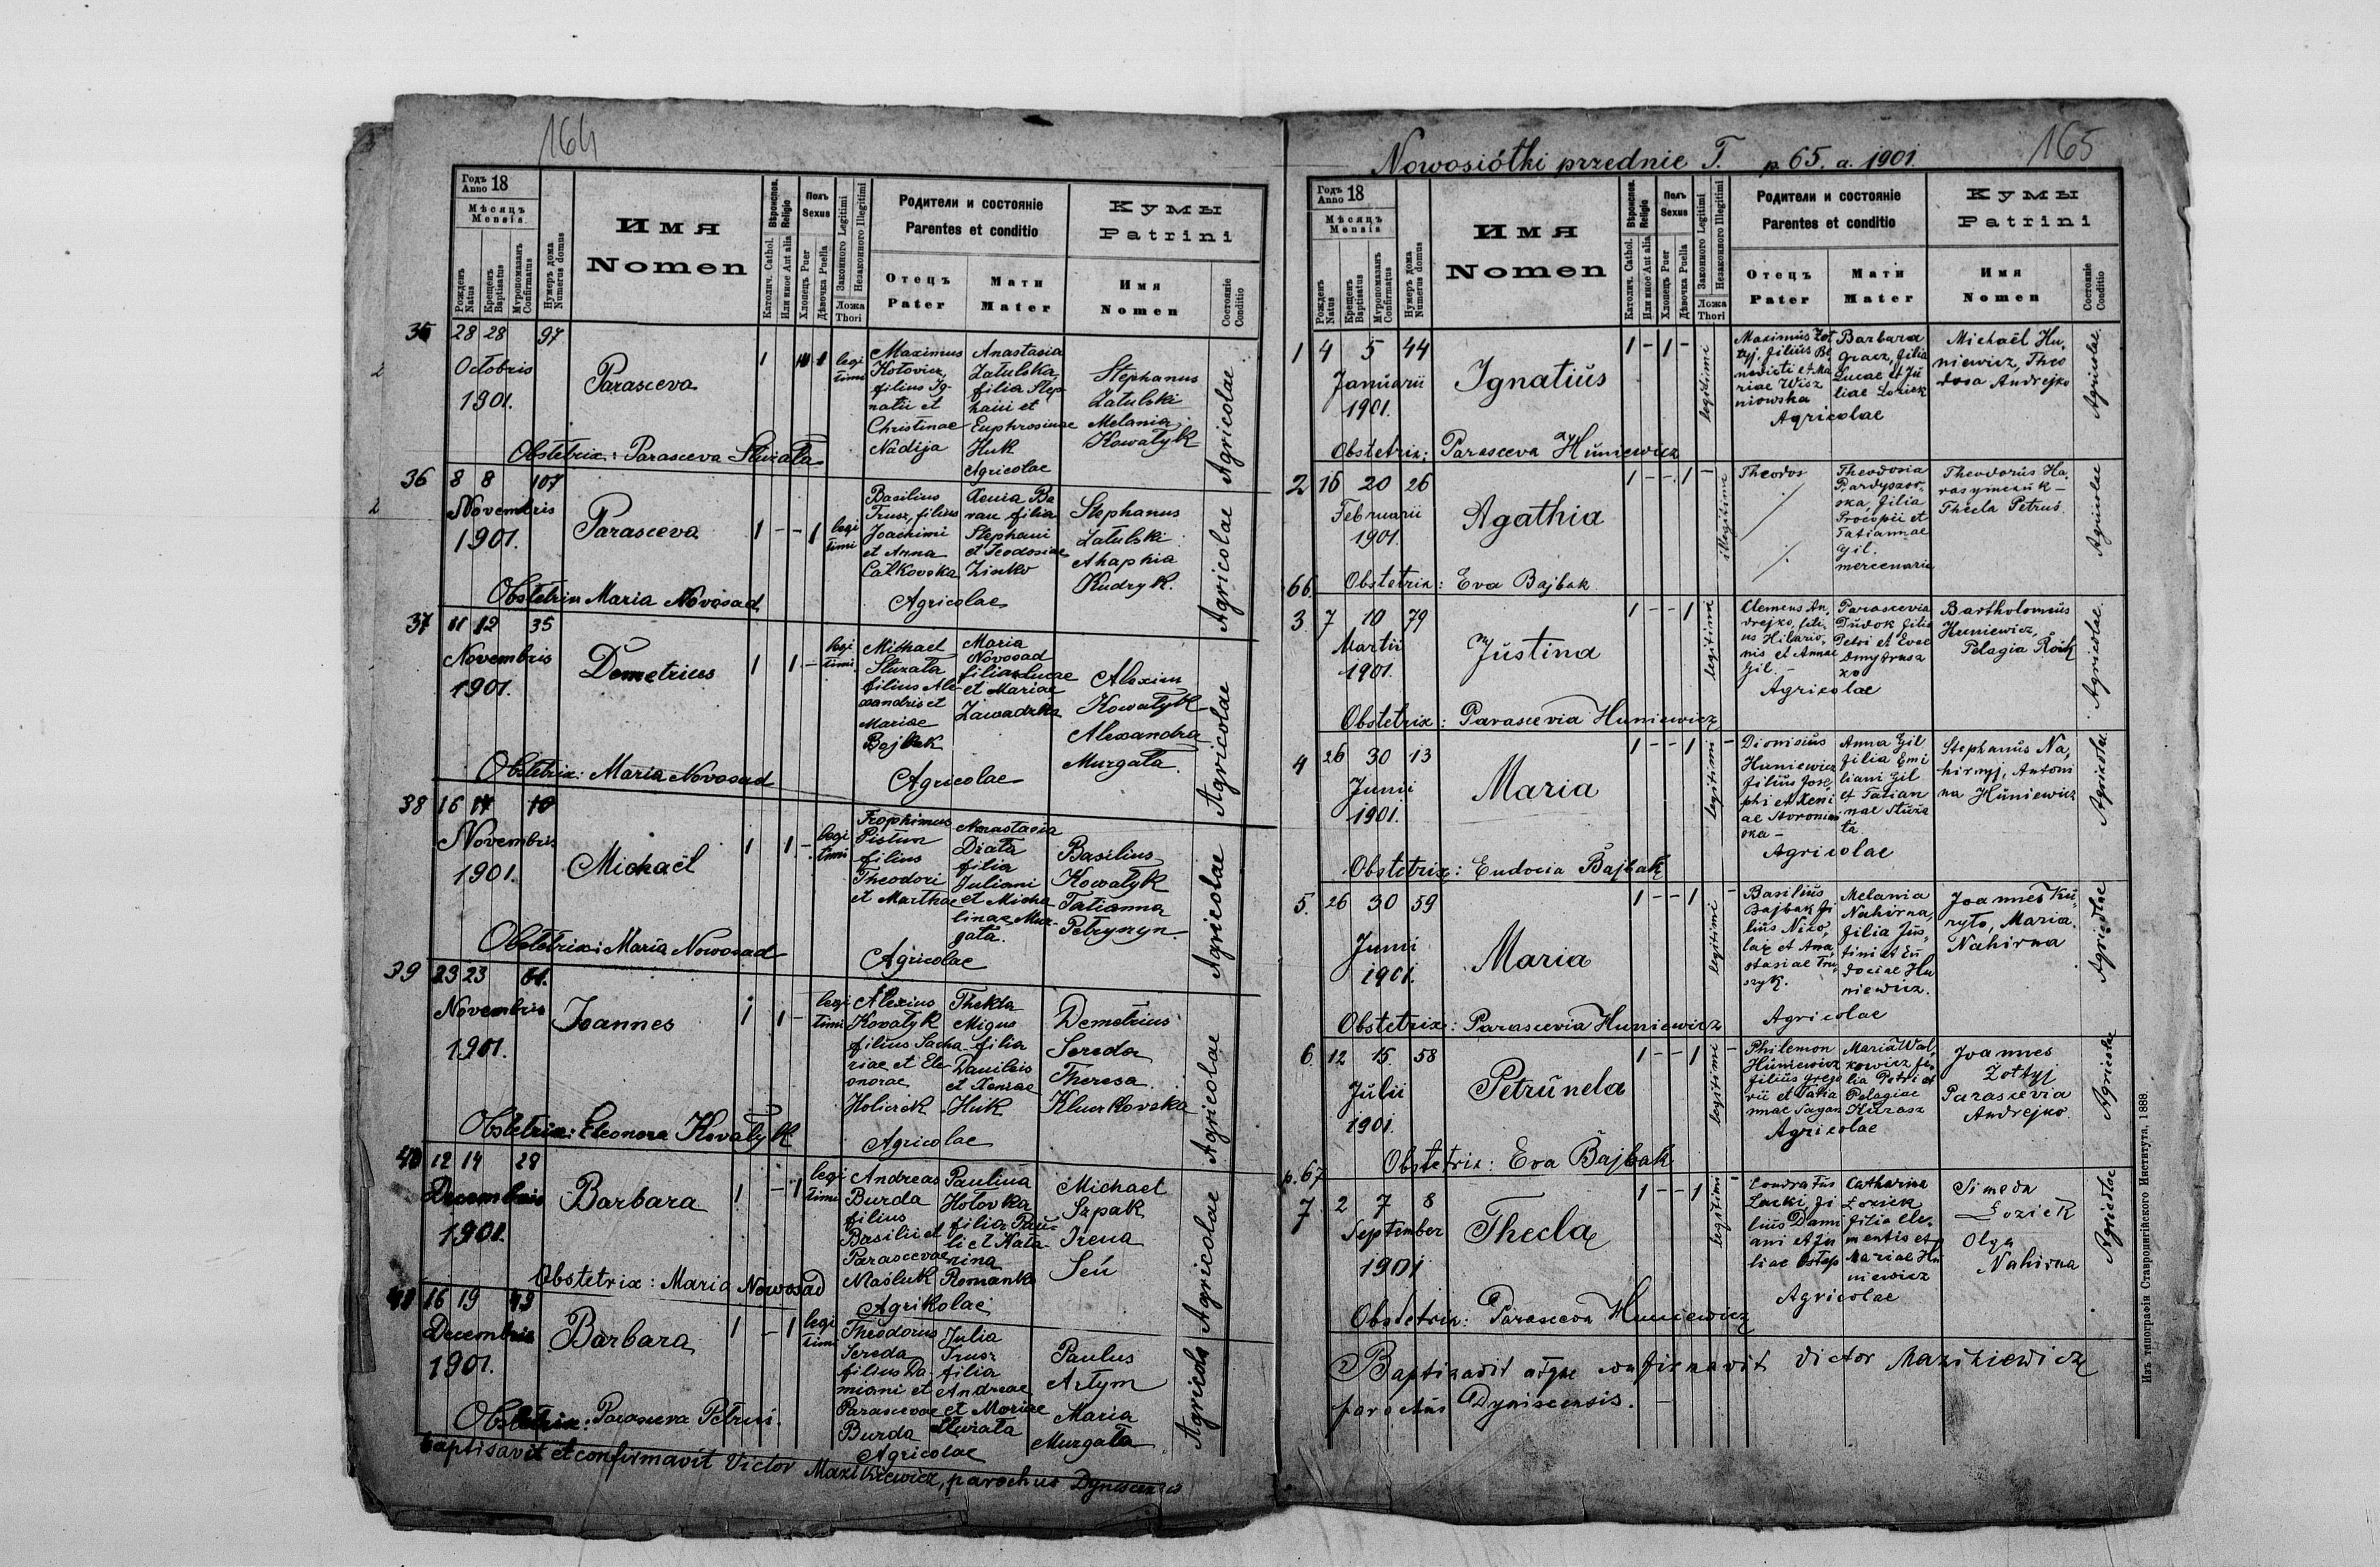 164
Годъ Anno 18
Мѣсяцъ
Mensis
Рожденъ Natus
Крещенъ Baptisatus
Мѵропомазанъ Confirmatus
Нумеръ дома Numerus domus
Имя
Nomen
Вѣроиспов. Religio
Католич. Cathol.
Или иное Aut alia
Полъ Sexus
Хлопецъ Puer
Дѣвочка Puella
Законного Legitimi
Незаконного Illegitimi
Ложа Thori
Родители и состоянiе
Parentes et conditio
Отецъ Pater
Мати Mater
Кумы
Patrini
Имя Nomen
Состоянiе Conditio
35 28 28 97
Octobris
1901.
Parasceva
1 1 legi
timi
Maximus
Kotowicz,
filius Ig-
natii et
Christinae
Nadija
Anastasia
Zatulska,
filia Step-
hani et
Euphrosinae
Huk
Agricolae
Stephanus
Zatulski
Melania
Kowatyk
Agricolae
Obstetrix: Parasceva Sturata
36 8 8 107
Novembris
1901.
Parasceva
1 - - 1 legi
timi
Basilius
Trusz, filius
Joachimi
et Anna
Całkovska
Xenia Ba
ran filia
Stephani
et Teodosiae
Zinko
Agricolae
Stephanus
Zatulski
Ahaphia
Kudryk.
Agricolae
Obstetrix Maria Novosad
37 11 12 35
Novembris
1901.
Demetrius
1 1 - legi
timi
Michael
Sturata
filius Ale-
xandris et
Mariae
Bajbak
Maria
Novosad
filia Lucae
et Mariae
Zawadzka
Agricolae
Alexius
Kowatyk
Alexandra
Murgata.
Agricolae
Obstetrix: Maria Novosad
38 16 17 10
Novembris
1901.
Michaël
1 1 - legi
timi
Trophimus
Pistun
filius
Theodori
et Marthae
Anastasia
Diata
filia
Juliani
et Micha
linae Mur-
gata.
Agricolae
Basilius
Kowatyk
Tatianna
Petryszyn.
Agricolae
Obstetrix: Maria Nowosad
39 23 23 61.
Novembris
1901.
Joannes
1 1 - legi
timi
Alexius
Kovatyk
filius Sacha-
riae et Ele-
onorae
Holicek
Thekla
Migus
filia
Danileis
et Xeniae
Huk
Agricolae
Demetrius
Sereda
Theresa
Agricolae
Obstetrix: Eleonora Kovatyk
40 12 14 28
Decembris
1901.
Barbara
1 - 1 legi
timi
Andreas
Burda
filius
Basilii et
Parascevae
Masluk
Paulina
Holovka
filia Pau-
li et Kata-
rina
Romanko
Agrikolae
Michael
Szpak
Irena
Seń
Agricolae
Obstetrix: Maria Nowosad
16 19 43
Decembris
1901.
Barbara
1 - 1 legi
timi
Theodorus
Sereda
filius Da-
miani et
Parascevae
Burda
Julia
Trusz
filia
Andreae
et Mariae
Sturata
Agricolae
Paulus
Artym
Maria
Murgata
Agricolae
Obstetrix: Parasceva Petrus.
baptisavit et confirmavit Victor Mazikiewicz, parochus Dyniscensis
165
Nowosiółki przednie T. p. 65. a. 1901.
Годъ Anno 18
Мѣсяцъ
Mensis
Рожденъ Natus
Крещенъ Baptisatus
Мѵропомазанъ Confirmatus
Нумеръ дома Numerus domus
Имя
Nomen
Вѣроиспов. Religio
Католич. Cathol.
Или иное Aut alia
Полъ Sexus
Хлопецъ Puer
Дѣвочка Puella
Законного Legitimi
Незаконного Illegitimi
Ложа Thori
Родители и состоянiе
Parentes et conditio
Отецъ Pater
Мати Mater
Кумы
Patrini
Имя Nomen
Состоянiе Conditio
1 4 5 44
Januarii
1901.
Ignatius
1 - 1 - legitimi
Maximus Żoł
tyj, filius Be
nedicti et Ma
riae Wisz
niowska
Barbara
Gracz, filia
Lucae et Ju
liae Łoziek
Agricolae
Michaël Hu,
niewicz, Theo
dosa Andrejko
Agricolae.
Obstetrix: Parasceva Huniewicz
2 16 20 26
Februarii
1901.
Agathia
1 - - 1 - illegitimi
Theodos
Theodosia
filia
Procopii et
Tatiannae
Gil.
mercenaria
Theodorus Ha,
rasymczuk -
Thecla Petrus.
Agricolae
66. Obstetrix: Eva Bajbak
3 7 10 79
Martii
1901.
Justina
1 - - 1 legitimi
Clemens An,
drejko, fili-
us Hilario,
nis et Annae
Gil. -
Parascevia
Dudok filia
Petri et Evae
Dmytrusz
ko
Agricolae
Bartholomeus
Huniewicz,
Pelagia
Agricolae.
Obstetrix: Parascevia Huniewicz
4 26 30 13
Junii
1901.
Maria
1 - - 1 - legitimi
Dionisius
Huniewicz
filius Jose,
phi et Xeni
ae Woronia
ska -
Anna Gil
filia Emi
liani Gil
et Tatian
nae Stura
ta
Agricolae
Stephanus Na,
hirnyj, Antoni
na Huniewicz
Agricolae.
Obstetrix: Eudocia Bajbak
5. 26 30 59
Junii
1901.
Maria
1 - - 1 - legitimi
Basilius
Bajbak fi
lius Nico,
lai et Ana,
stasiae Tru,
szyk.
Melania
Nahirna,
filia Jus,
tini et Eu
dociae Hu
niewicz.
Agricolae
Joannes Ku,
ryto, Maria
Nahirna
Agricolae
Obstetrix: Parascevia Huniewicz
6. 12 15. 58
Julii
1901.
Petrunela
1 - - 1 - legitimi
Philemon
Huniewicz
filius Grego
rii et Tatia
nnae Sagan
Maria Wal,
kowicz fi,
lia Petri et
Pelagiae
Kurasz
Agricolae
Joannes
Żołtyj
Parascevia
Andrejko.
Agricolae
Obstetrix: Eva Bajbak
p. 67
7. 2 7 8
September
1901
Thecla
1 - - 1 - legitimi
Condratus
Lucki fi
lius Dami
ani et Ju
liae Ostap
Catharina
Łoziek
filia Cle-
mentis et
Mariae Hu
niewicz
Agricolae
Simeon
Łoziek
Olga
Nahirna
Agricolae
Obstetrix: Parasceva Huniewicz
Baptizavit atque confirmavit Victor Mazikiewicz
parochus Dyniscensis. -
Изъ типографiи Ставропигiйского Института, 1888.